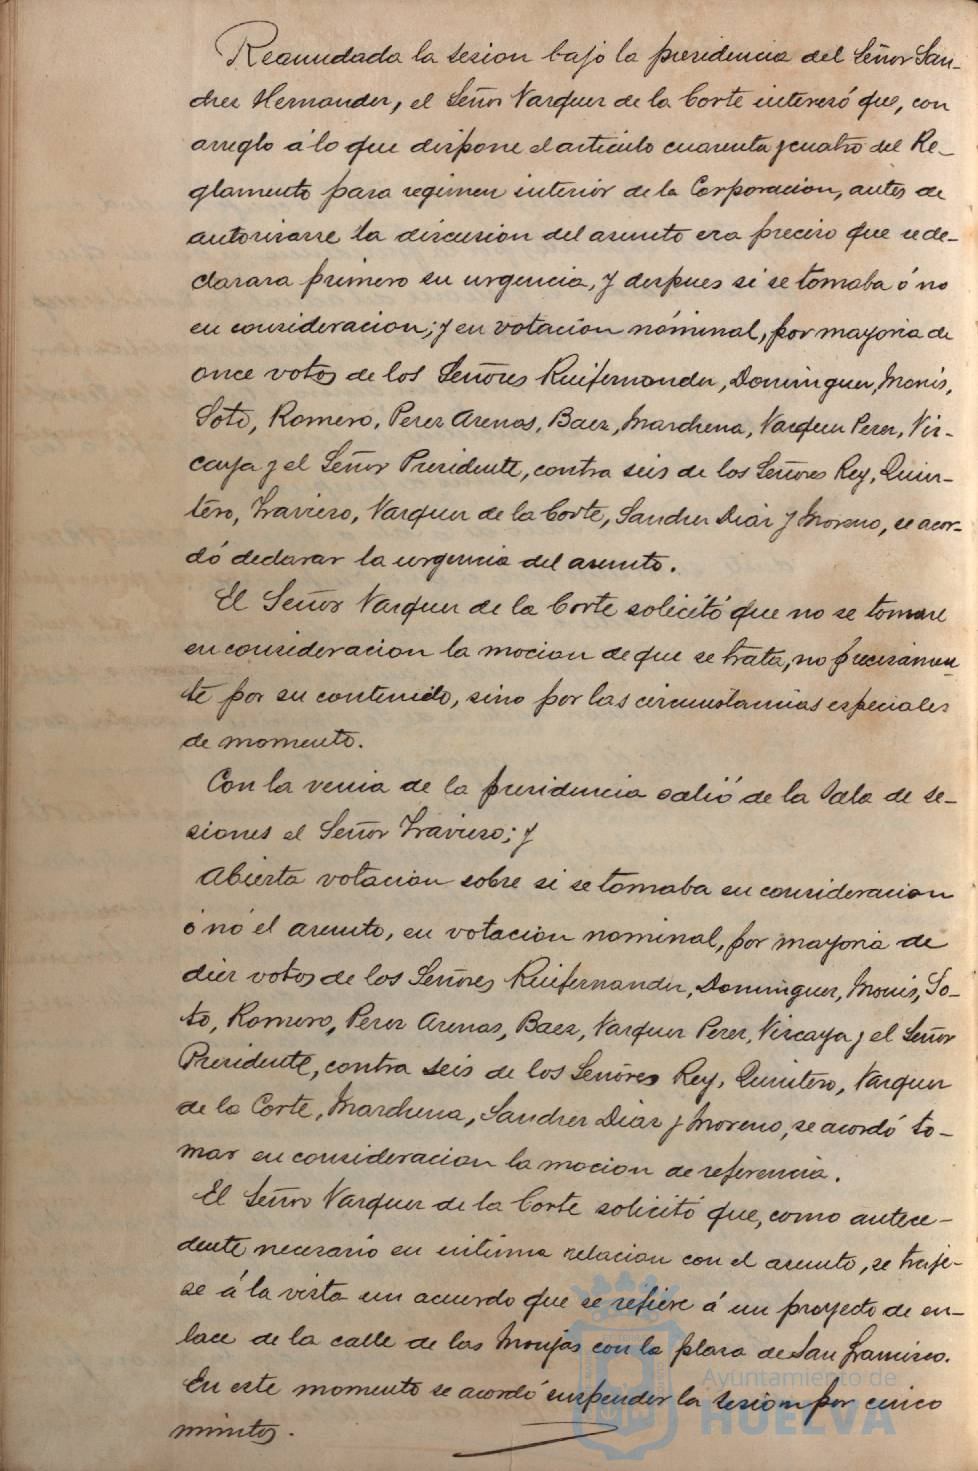 Reanudada la sesion bajo la presidencia del Señor San-
chez Hernandez, el Señor Vazquez de la Corte interesó que, con
arreglo á lo que dispone el artículo cuarenta y cuatro del Re-
glamento para regimen interior de la Corporacion, antes de
autorizarse la discusion del asunto era preciso que se de-
clarara primero su urgencia, y despues si se tomaba ó no
en consideracion; y en votacion nóminal, por mayoria de
once votos de los Señores Ruifernandez, Dominguez, Monis,
Soto, Romero, Perez Arenas, Baez, Marchena, Vazquez Perez, Viz-
caya y el Señor Presidente, contra seis de los Señores Rey, Quin-
tero, Travieso, Vazquez de la Corte, Sanchez Diaz y Moreno, se acor-
dó declarar la urgencia del asunto.
El Señor Vazquez de la Corte solicitó que no se tomase
en consideracion la mocion de que se trata, no precisamen-
te por su contenido, sino por las circunstancias especiales
de momento.
Con la venia de la presidencia salió de la Sala de se-
siones el Señor Travieso; y
Abierta votacion sobre si se tomaba en consideracion
ó nó el asunto, en votacion nominal, por mayoria de
diez votos de los Señores Ruifernandez, Dominguez, Monis, So-
to, Romero, Perez Arenas, Baez, Vazquez Perez, Vizcaya y el Señor
Presidente, contra seis de los Señores Rey, Quintero, Vazquez
de la Corte, Marchena, Sanchez Diaz y Moreno, se acordó to-
mar en consideracion la mocion de referencia.
El Señor Vazquez de la Corte solicitó que, como antece-
dente necesario en intima relacion con el asunto, se traje-
se á la vista un acuerdo que se refiere á un proyecto de en-
lace de la calle de las Monjas con la plaza de San Francisco.
En este momento se acordó suspender la sesion por cinco
minutos.
Ayuntamiento de
HUELVA